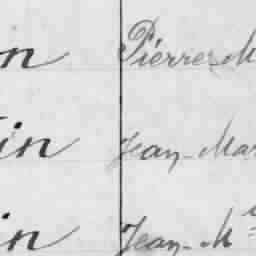 on Pierre M
in Jean-Mar
in Jean-M